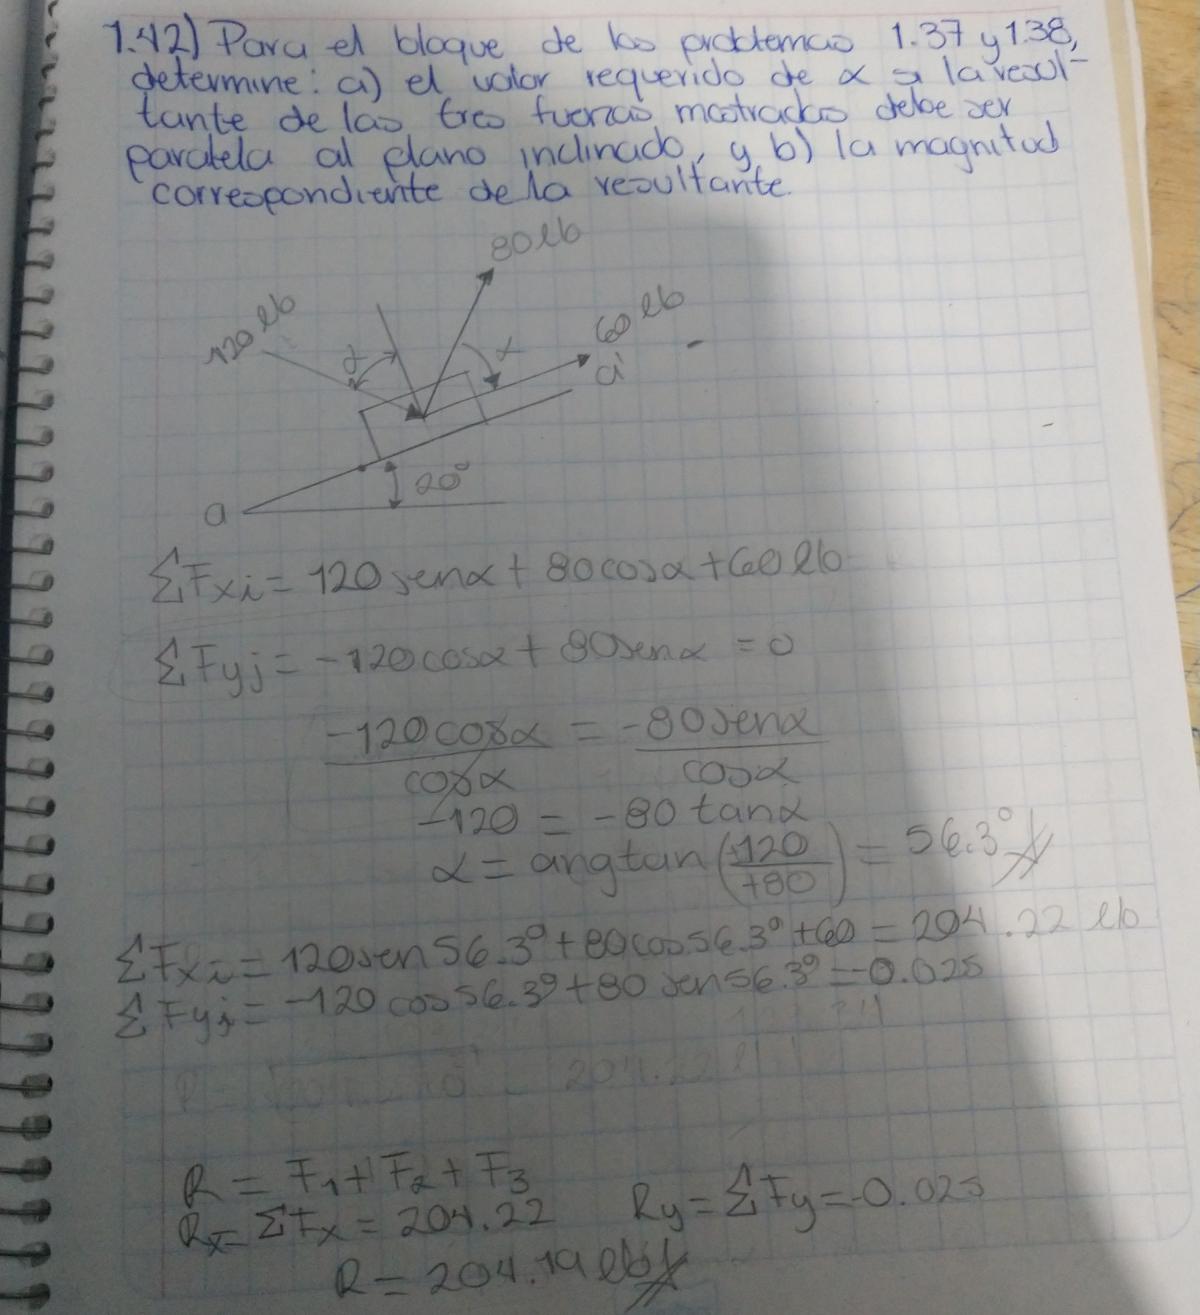 1.42) Para el bloque de los problemas 1.37 y 1.38,
determine: a) el valor requerido de α si la resul-
tante de las tres fuerzas mostradas debe ser
paralela al plano inclinado, y b) la magnitud
correspondiente de la resultante.
80 lb
120 lb
60 lb
α
α
a'
20°
a
ΣFxi = 120 senα + 80 cosα + 60 lb
ΣFyj = -120 cosα + 80 senα = 0
-120 cosα / cosα = -80 senα / cosα
-120 = -80 tanα
α = angtan (120 / +80) = 56.3°
ΣFxi = 120 sen 56.3° + 80 cos 56.3° + 60 = 204.22 lb
ΣFyj = -120 cos 56.3° + 80 sen 56.3° = -0.025
R = F1 + F2 + F3
Rx = ΣFx = 204.22 Ry = ΣFy = -0.025
R = 204.19 lb